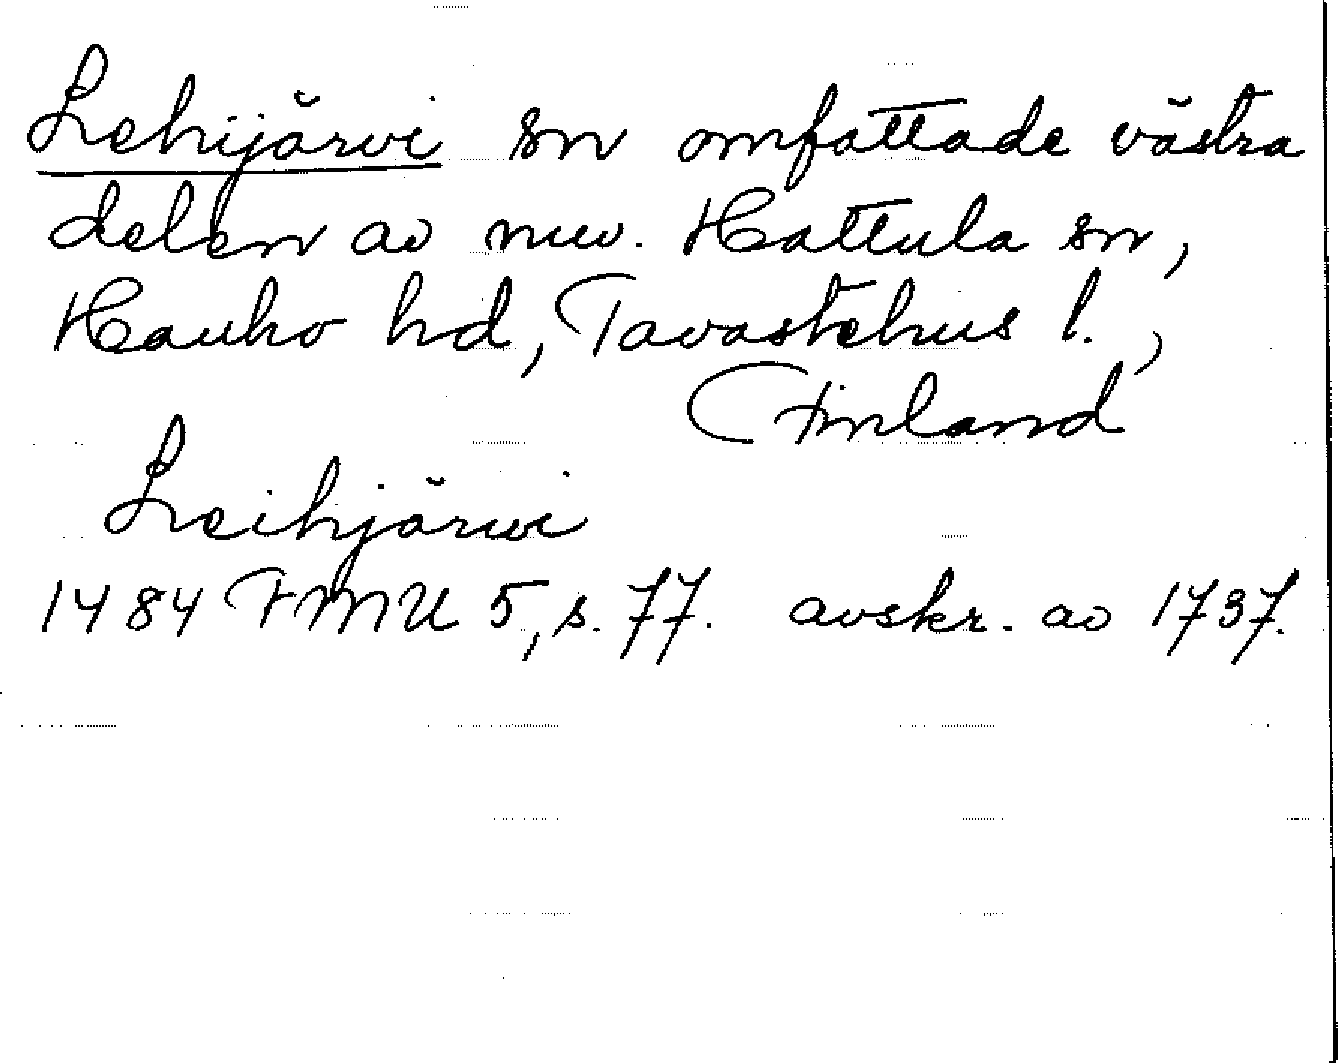 Lehijärvi sn omfattade västra
delen av nuv. Hattula sn,
Hauho hd, Tavastehus l.,
Finland
Leihjärvi
1484 FMU 5, s. 77. avskr. av 1737.